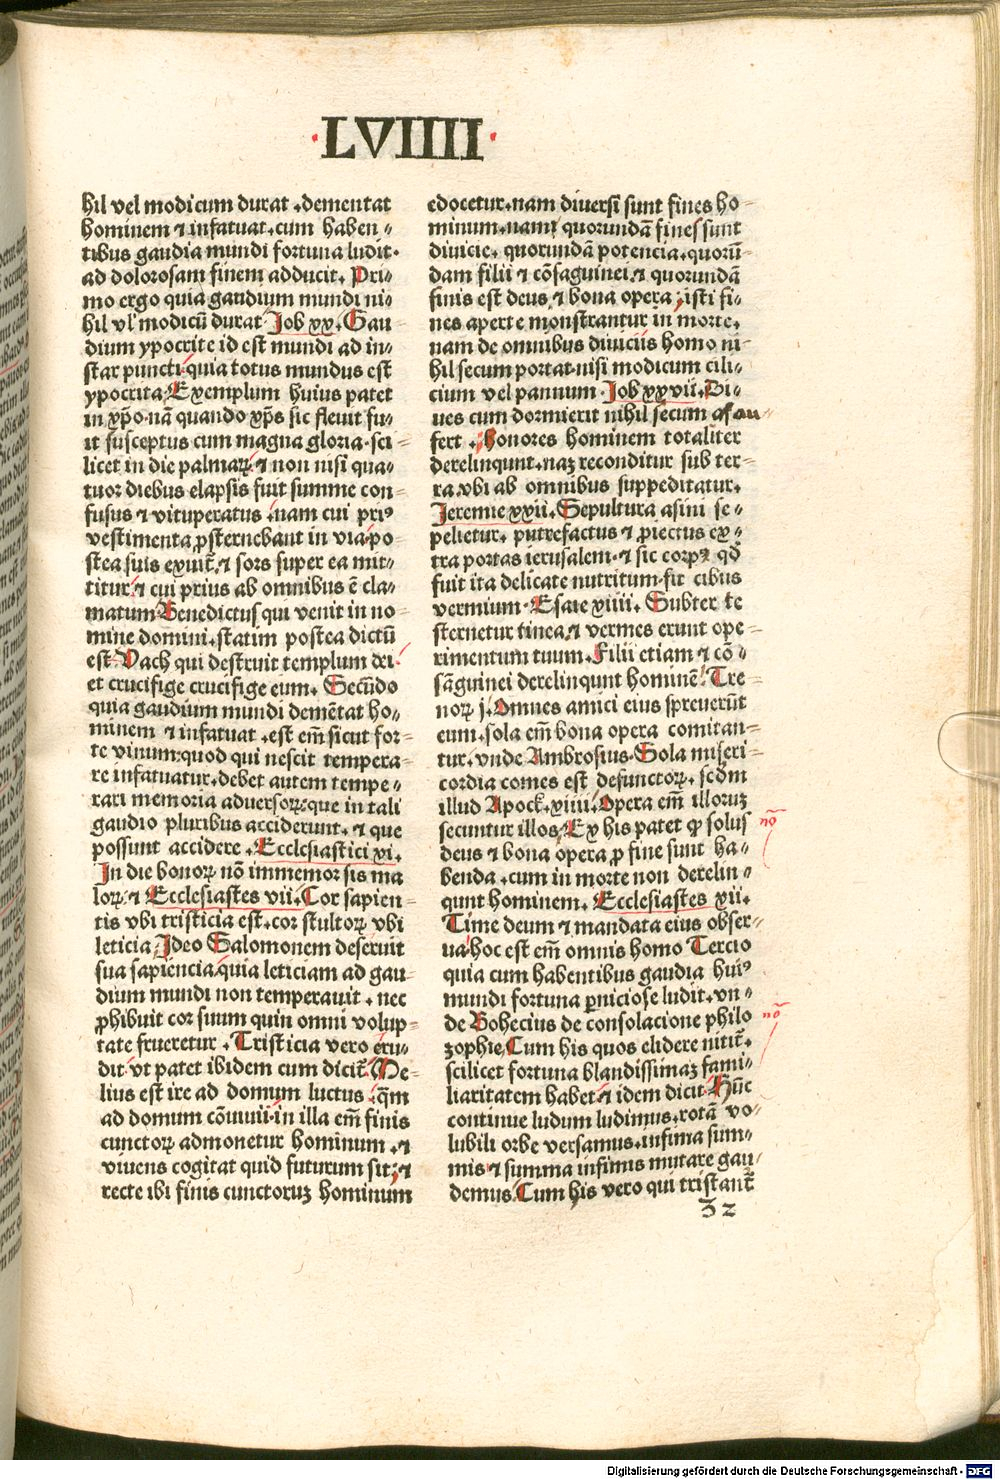 LVIIII
hil vel modicum durat .dementat
hominem ⁊ infatuat.cum haben⸗
tibus gaudia mundi fortuna ludit.
ad dolorosam finem adducit. Pri⸗
mo ergo quia gaudium mundi ni⸗
hil vl' modicū durat Job xx. Gau
dium ypocrite id est mundi ad in⸗
star puncti quia totus mundus est
ypocrita. Exemplum huius patet
in xp̄o.nā quando xp̄s sic fleuit fu⸗
it susceptus cum magna gloria.sci
licet in die palmaꝝ.⁊ non nisi qua⸗
tuor diebus elapsis fuit summe con
fusus ⁊ vituperatus .nam cui priꝰ
vestimenta ꝓsternebant in via.po
stea suis exuit̄.⁊ sors super ea mit⸗
titur.⁊ cui prius ab omnibus ē cla⸗
matum Benedictus qui venit in no
mine domini.statim postea dictū
est.Vach qui destruit templum dei
et crucifige crucifige eum. Secūdo
quia gaudium mundi demētat ho⸗
minem ⁊ infatuat .est em̄ sicut for
te vinum.quod qui nescit tempera
re infatuatur.debet autem tempe⸗
rari memoria aduersoꝝ.que in tali
gaudio pluribus acciderunt. ⁊ que
possunt accidere .Ecclesiastici xi.
In die bonoꝝ nō immemor sis ma
loꝝ.⁊ Ecclesiastes vii.Cor sapien
tis vbi tristicia est.cor stultoꝝ vbi
leticia. Ideo Salomonem deseruit
sua sapiencia.quia leticiam ad gau
dium mundi non temperauit . nec
ꝓhibuit cor suum quin omni volup
tate frueretur .Tristicia vero eru⸗
dit.vt patet ibidem cum dicit̄.Me⸗
lius est ire ad domum luctus .q̄m
ad domum cōuiuii.in illa em̄ finis
cunctoꝝ admonetur hominum .⁊
viuens cogitat quid futurum sit.⁊
recte ibi finis cunctoruꝫ hominum
edocetur.nam diuersi sunt fines ho
minum.nam quorundā fines sunt
diuicie. quorundā potencia.quorū
dam filii ⁊ cōsaguinei.⁊ quorundā
finis est deus.⁊ bona opera .isti fi⸗
nes aperte monstrantur in morte.
nam de omnibus diuiciis homo ni
hil secum portat.nisi modicum cili⸗
cium vel pannum .Job xxvii.Di⸗
ues cum dormierit nihil secum afau
fert .Honores hominem totaliter
derelinqunt.naꝫ reconditur sub ter
ra.vbi ab omnibus suppeditatur.
Jeremie xxii. Sepultura asini se⸗
pelietur. putrefactus ⁊ ꝓiectus ex⸗
tra portas ierusalem.⁊ sic corpꝰ qd̄
fuit ita delicate nutritum.fit cibus
vermium.Esaie xiiii. Subter te
sternetur tinea.⁊ vermes erunt ope
rimentum tuum.Filii etiam ⁊ cō⸗
sāguinei derelinqunt hominē.Tre
noꝝ j.Omnes amici eius spreuerūt
eum.sola em̄ bona opera comitan
tur.vnde Ambrosius.Sola miseri
cordia comes est defunctoꝝ.scd̄m
illud Apock.xiiii.Opera em̄ illoruꝫ
secuntur illos.Ex his patet ꝙ solus
deus ⁊ bona opera ꝓ fine sunt ha⸗
benda .cum in morte non derelin⸗
qunt hominem. Ecclesiastes xii.
Time deum ⁊ mandata eius obser
ua.hoc est em̄ omnis homo Tercio
quia cum habentibus gaudia huiꝰ
mundi fortuna ꝑniciose ludit.vn⸗
de Bohecius de consolacione philo
zophie.Cum his quos elidere nitit̄.
scilicet fortuna blandissimaꝫ fami⸗
liaritatem habet.⁊ idem dicit Hūc
continue ludum ludimus.rotā vo⸗
lubili orbe versamus.infima sum⸗
mis ⁊ summa infimis mutare gau⸗
demus.Cum his vero qui tristant̄
32
nō
nō
Digitalisierung gefördert durch die Deutsche Forschungsgemeinschaft - DFG